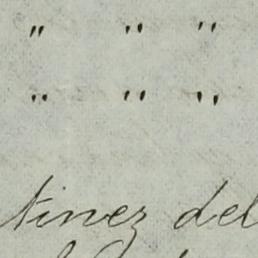 " " "
" " "
tinez del